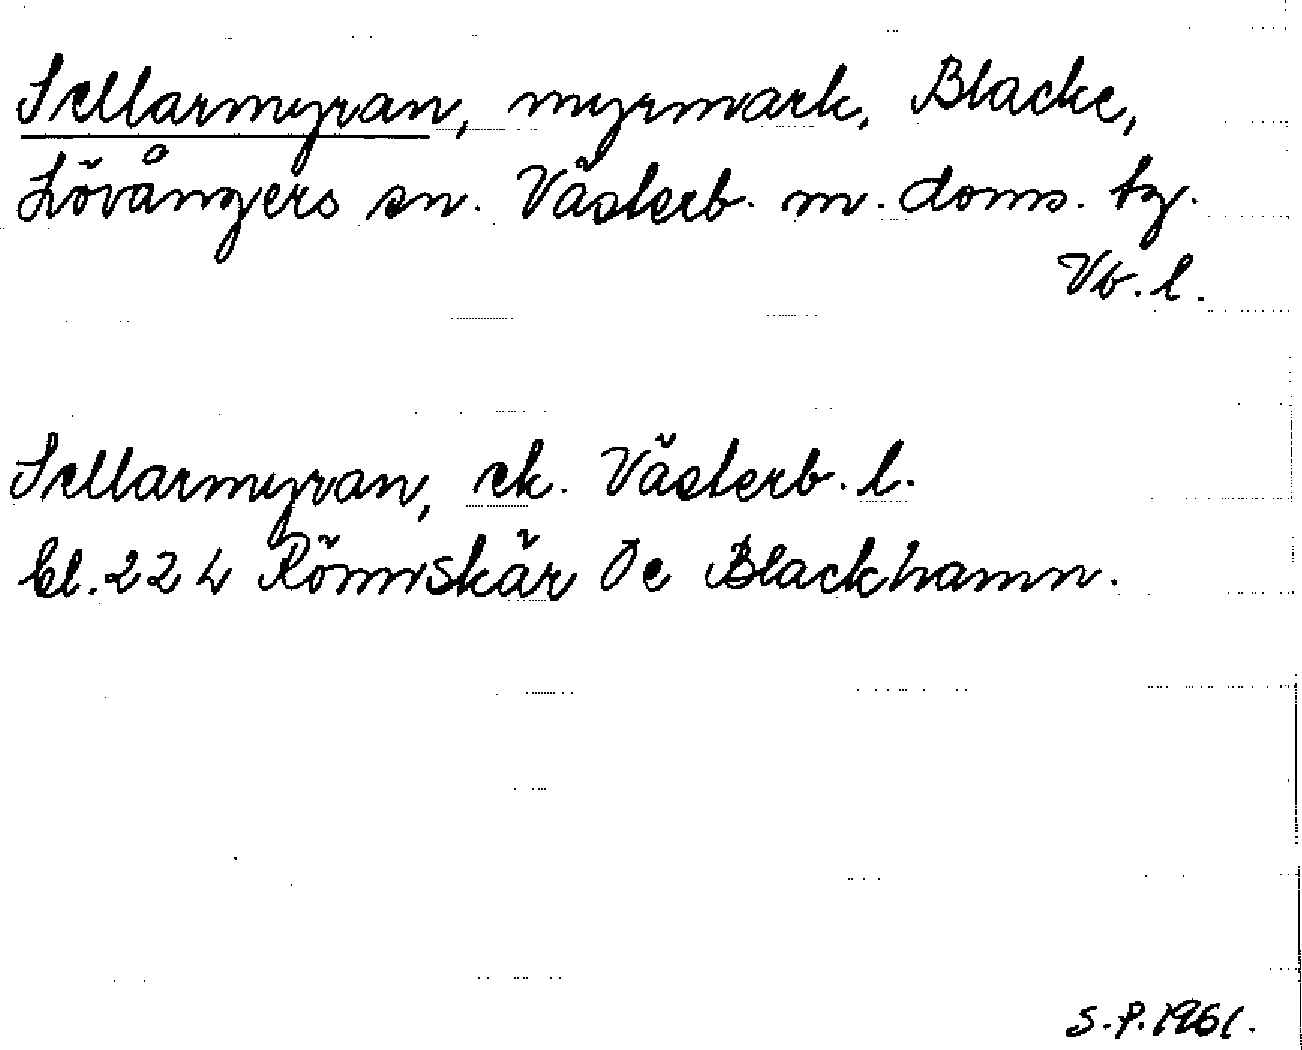 Sellarmyran, myrmark, Blacke,
Lövångers sn. Västerb. m. doms. tg.
Vb. l.
Sellarmyran, ek. Västerb. l.
bl. 22 L Rönnskär Öe Blackhamn.
S.P. 1961.